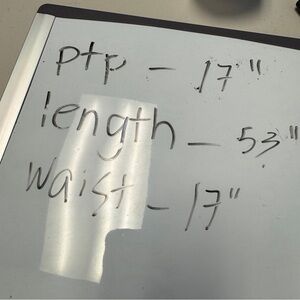 ptp - 17"
length - 53"
waist - 17"